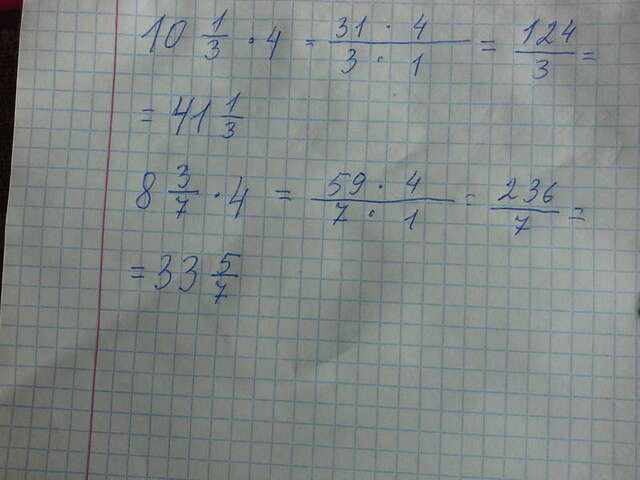 10 1/3 · 4 = (31 · 4)/(3 · 1) = 124/3 =
= 41 1/3
8 3/7 · 4 = (59 · 4)/(7 · 1) = 236/7 =
= 33 5/7